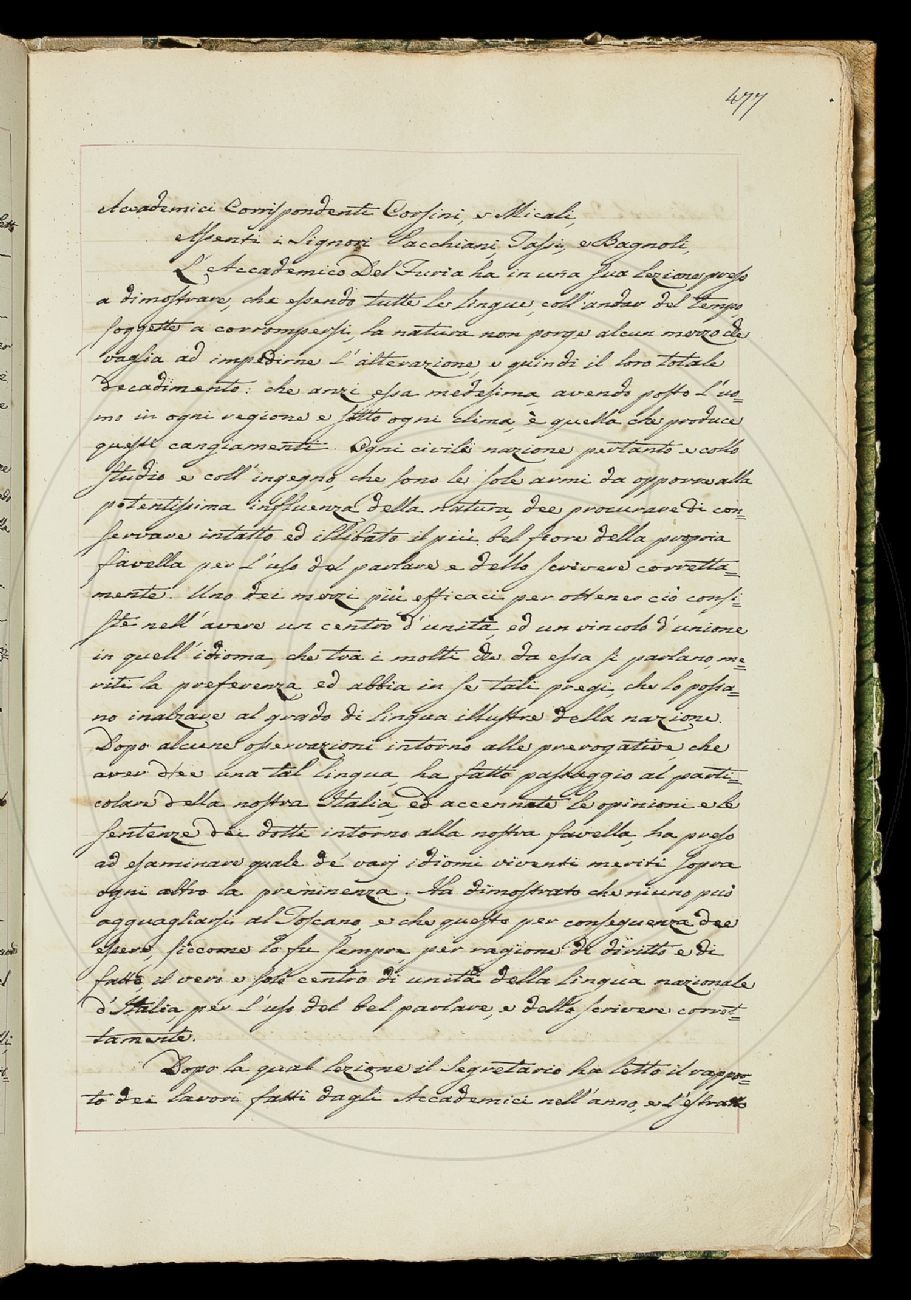 477
Accademici Corrispondenti Corsini, e Micali,
Assenti i Signori Pacchiani, Tassi, e Bagnoli,
L'Accademico Del Furia ha in una sua lezione preso
a dimostrare, che essendo tutte le lingue, coll'andar del tempo,
soggette a corrompersi, la natura non porge alcun mezzo che
vaglia ad impedirne l'alterazione, e quindi il loro totale
decadimento: che anzi essa medesima avendo posto l'uo=
mo in ogni regione e sotto ogni clima, è quella che produce
questi cangiamenti. Ogni civile nazione pertanto e collo
studio e coll'ingegno, che sono le sole armi da opporre alla
potentissima influenza della natura, dee procurare di con=
servare intatto ed illibato il più bel fiore della propria
favella per l'uso del parlare e dello scrivere corretta=
mente. Uno dei mezzi più efficaci per ottener ciò consi=
ste nell'avere un centro d'unità, ed un vincolo d'unione
in quell'idioma, che tra i molti che da essa si parlano, me=
riti la preferenza, ed abbia in se tali pregi, che lo possa=
no inalzare al grado di lingua illustre della nazione.
Dopo alcune osservazioni intorno alle prerogative, che
aver dee una tal lingua, ha fatto passaggio al parti=
colare della nostra Italia, ed accennate le opinioni e le
sentenze dei dotti intorno alla nostra favella, ha preso
ad esaminare quale de' varj idiomi viventi meriti sopra
ogni altro la preminenza. Ha dimostrato che niuno può
agguagliarsi al Toscano, e che questo per conseguenza dee
essere, siccome lo fu sempre per ragione di diritto e di
fatto, il vero e solo centro di unità della lingua nazionale
d'Italia, per l'uso del bel parlare, e dello scrivere corret=
tamente.
Dopo la qual lezione il Segretario ha letto il rappor=
to dei lavori fatti dagli Accademici nell'anno, e l'estratto